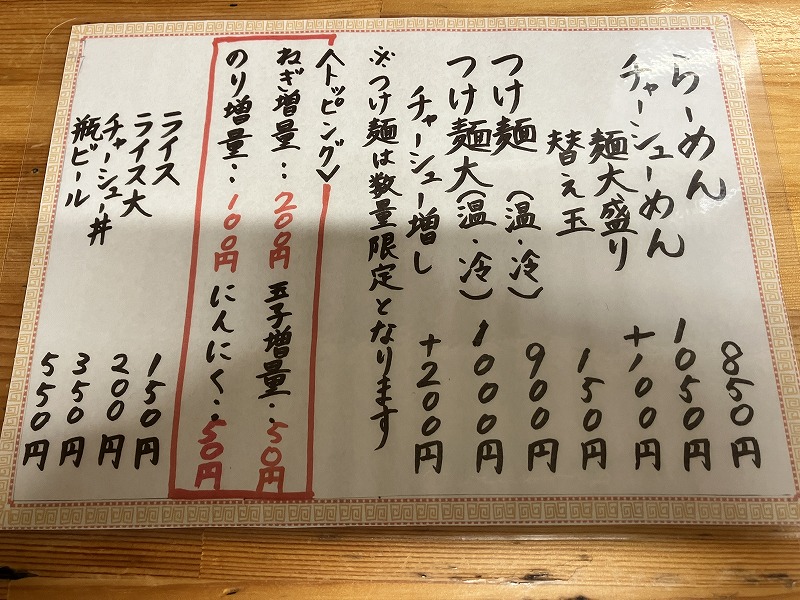 らーめん 850円
チャーシューめん 1050円
麺大盛り +100円
替え玉 150円
つけ麺(温・冷) 900円
つけ麺大(温・冷) 1000円
チャーシュー増し +200円
※つけ麺は数量限定となります
〈トッピング〉
ねぎ増量‥200円 玉子増量‥50円
のり増量‥100円 にんにく‥50円
ライス 150円
ライス大 200円
チャーシュー丼 350円
瓶ビール 550円